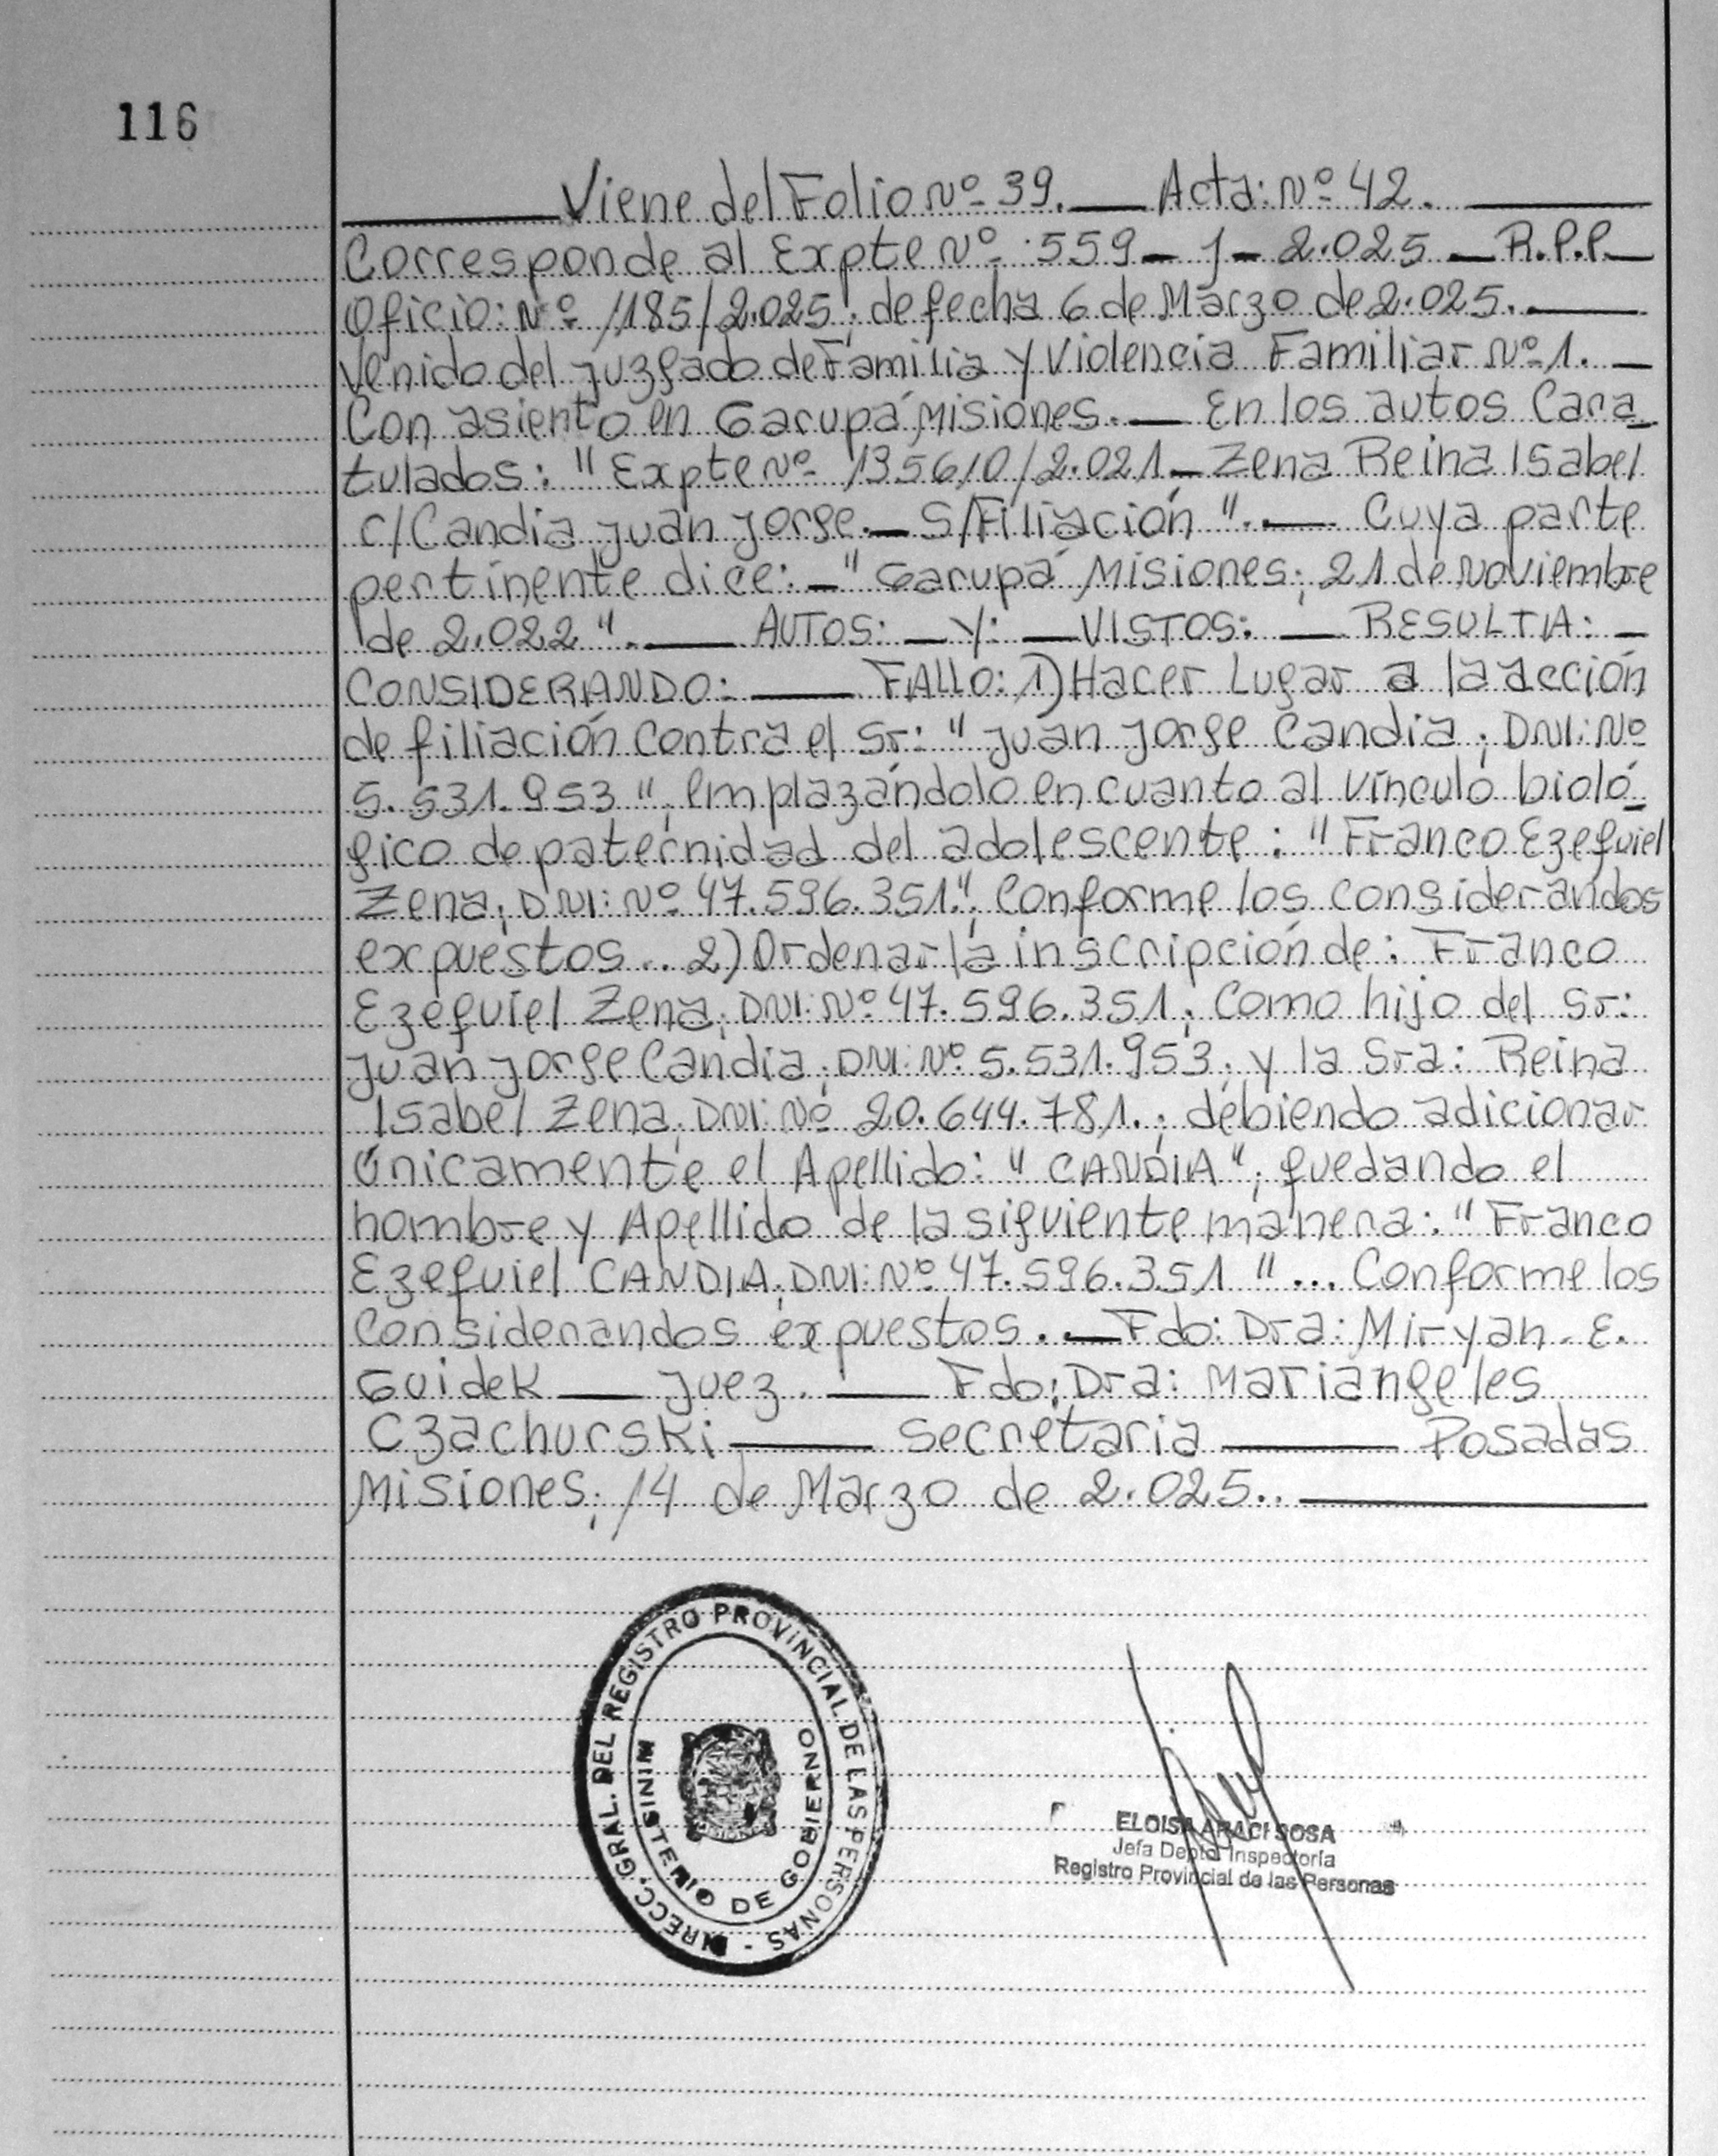 116
Viene del Folio Nº 39. — Acta: Nº 42.
Corresponde al Expte Nº 559 - J - 2.025 — R.P.P.—
Oficio: Nº 1185/2.025; de fecha 6 de Marzo de 2.025. —
Venido del Juzgado de Familia y Violencia Familiar Nº 1. —
Con asiento en Garupá Misiones. — En los autos Cara_
tulados: "Expte Nº 135610/2.021 — Zena Reina Isabel
c/ Candia Juan Jorge. — S/Filiación". — Cuya parte
pertinente dice: — "Garupá Misiones; 21 de Noviembre
de 2.022". — AUTOS: — Y: — VISTOS: — RESULTA: —
CONSIDERANDO: — FALLO: 1) Hacer Lugar a la acción
de filiación contra el Sr: "Juan Jorge Candia; DNI: Nº
5.531.953"; emplazándolo en cuanto al vínculo bioló_
gico de paternidad del adolescente: "Franco Ezequiel
Zena; DNI: Nº 47.596.351."; Conforme los considerandos
expuestos... 2) Ordenar la inscripción de: Franco
Ezequiel Zena; DNI: Nº 47.596.351; Como hijo del Sr:
Juan Jorge Candia; DNI: Nº 5.531.953; y la Sra: Reina
Isabel Zena; DNI: Nº 20.644.781.; debiendo adicionar
únicamente el Apellido: "CANDIA"; quedando el
nombre y Apellido de la siguiente manera: "Franco
Ezequiel CANDIA; DNI: Nº 47.596.351"... Conforme los
Considerandos expuestos. — Fdo: Dra: Miryan. E.
Guidek — Juez. — Fdo: Dra: Mariangeles
Czachurski — Secretaria — Posadas
Misiones; 14 de Marzo de 2.025.. —
DIRECC. GRAL. DEL REGISTRO PROVINCIAL DE LAS PERSONAS -
MINISTERIO DE GOBIERNO
MISIONES
ELOISA ARACI SOSA
Jefa Depto Inspectoría
Registro Provincial de las Personas